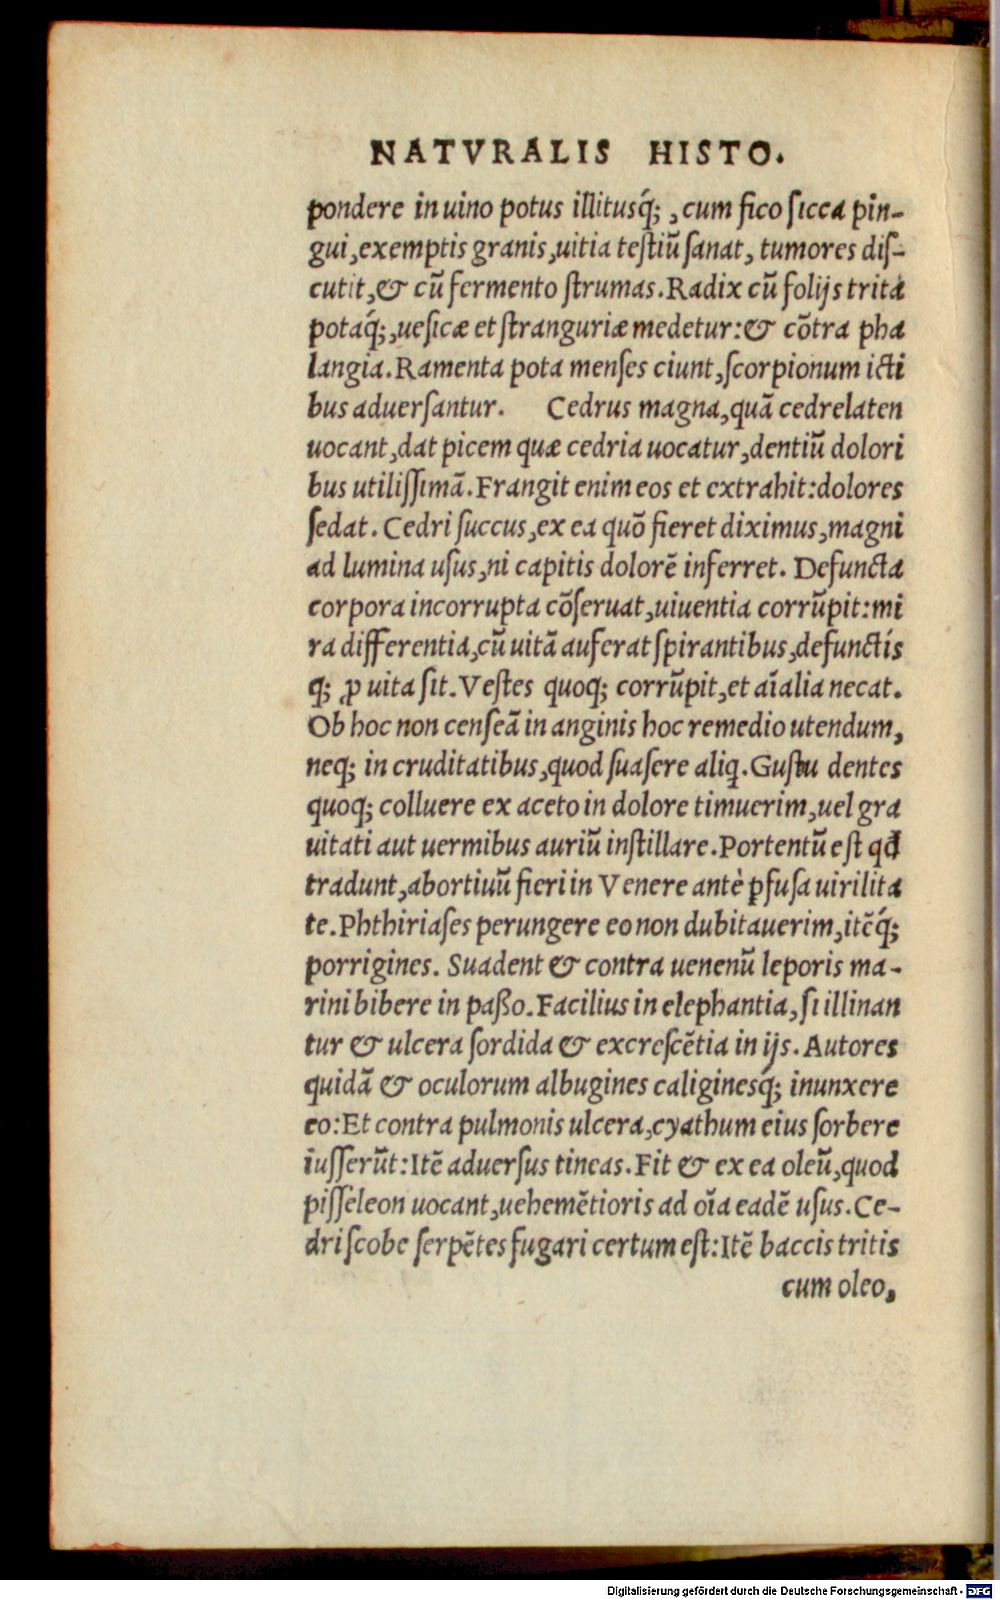 NATVRALIS HISTO.
pondere in uino potus illitusq́;, cum fico ſicca pin-
gui, exemptis granis, uitia teſtiũ ſanat, tumores diſ-
cutit, & cũ fermento ſtrumas. Radix cũ folijs trita
potaq́;, ueſicæ et ſtranguriæ medetur: & cõtra pha
langia. Ramenta pota menſes ciunt, ſcorpionum icti
bus aduerſantur. Cedrus magna, quã cedrelaten
uocant, dat picem quæ cedria uocatur, dentiũ dolori
bus utiliſſimã. Frangit enim eos et extrahit: dolores
ſedat. Cedri ſuccus, ex ea quõ fieret diximus, magni
ad lumina uſus, ni capitis dolorẽ inferret. Defuncta
corpora incorrupta cõſeruat, uiuentia corrũpit: mi
ra differentia, cũ uitã auferat ſpirantibus, defunctis
q; ꝓ uita ſit. Veſtes quoq; corrũpit, et aĩalia necat.
Ob hoc non cenſeã in anginis hoc remedio utendum,
neq; in cruditatibus, quod ſuaſere aliq. Guſtu dentes
quoq; colluere ex aceto in dolore timuerim, uel gra
uitati aut uermibus auriũ inſtillare. Portentũ eſt qđ
tradunt, abortiuũ fieri in Venere antè ꝑfuſa uirilita
te. Phthiriaſes perungere eo non dubitauerim, itẽq́;
porrigines. Suadent & contra uenenũ leporis ma-
rini bibere in paßo. Facilius in elephantia, ſi illinan
tur & ulcera ſordida & excreſcẽtia in ijs. Autores
quidã & oculorum albugines caliginesq́; inunxere
eo: Et contra pulmonis ulcera, cyathum eius ſorbere
iuſſerũt: Itẽ aduerſus tineas. Fit & ex ea oleũ, quod
piſſeleon uocant, uehemẽtioris ad oĩa eadẽ uſus. Ce-
dri ſcobe ſerpẽtes fugari certum eſt: Itẽ baccis tritis
cum oleo,
Digitalisierung gefördert durch die Deutsche Forschungsgemeinschaft - DFG